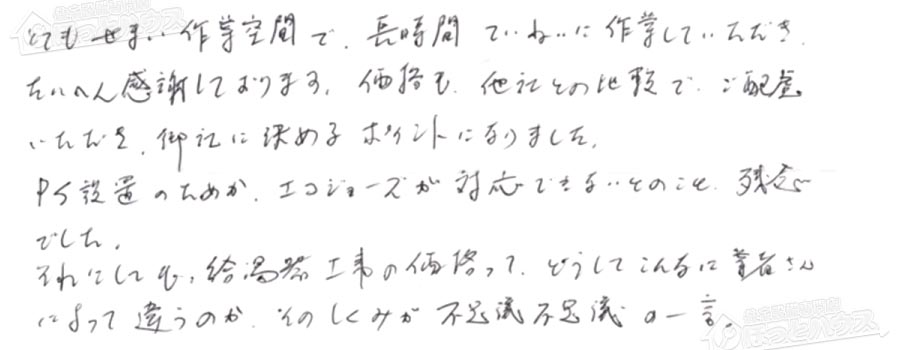 とてもせまい作業空間で、長時間ていねいに作業していただき、
たいへん感謝しております。価格も、他社との比較で、ご配慮
いただき、御社に決めるポイントになりました。
PS設置のためか、エコジョーズが対応できないとのこと、残念
でした。
それにしても、給湯器工事の価格って、どうしてこんなに業者さん
によって違うのか、そのしくみが不思議不思議の一言。
ほっとハウス